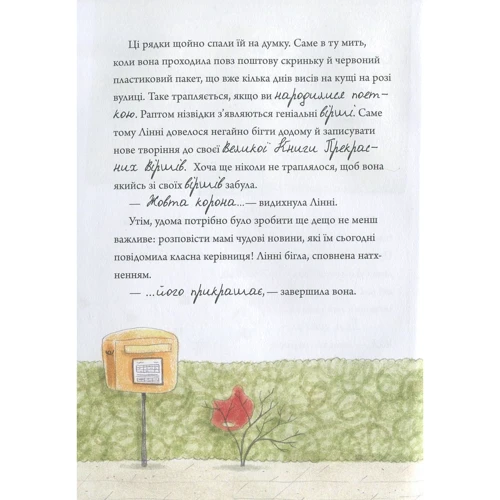 Ці рядки щойно спали їй на думку. Саме в ту мить,
коли вона проходила повз поштову скриньку й червоний
пластиковий пакет, що вже кілька днів висів на кущі на розі
вулиці. Таке трапляється, якщо ви народилися поет-
кою. Раптом нізвідки з'являються геніальні вірші. Саме
тому Лінні довелося негайно бігти додому й записувати
нове творіння до своєї Великої Книги Прекрас-
них Віршів. Хоча ще ніколи не траплялося, щоб вона
якийсь зі своїх віршів забула.
— Жовта корона...— видихнула Лінні.
Утім, удома потрібно було зробити ще дещо не менш
важливе: розповісти мамі чудові новини, які їм сьогодні
повідомила класна керівниця! Лінні бігла, сповнена натх-
ненням.
— ...його прикрашає,— завершила вона.